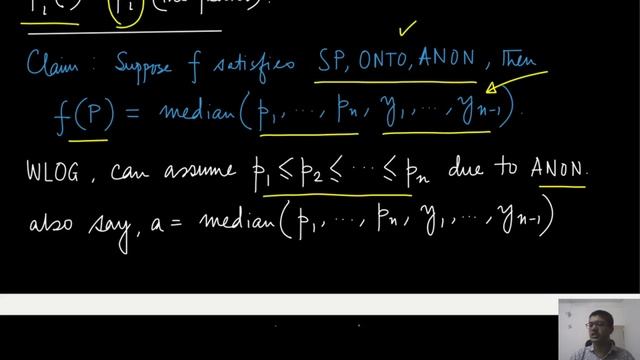 Claim: Suppose f satisfies SP, ONTO, ANON, then
f(P) = median(p₁, ..., pₙ, y₁, ..., yₙ₋₁).
WLOG, can assume p₁ ≤ p₂ ≤ ... ≤ pₙ due to ANON.
also say, a = median(p₁, ..., pₙ, y₁, ..., yₙ₋₁)